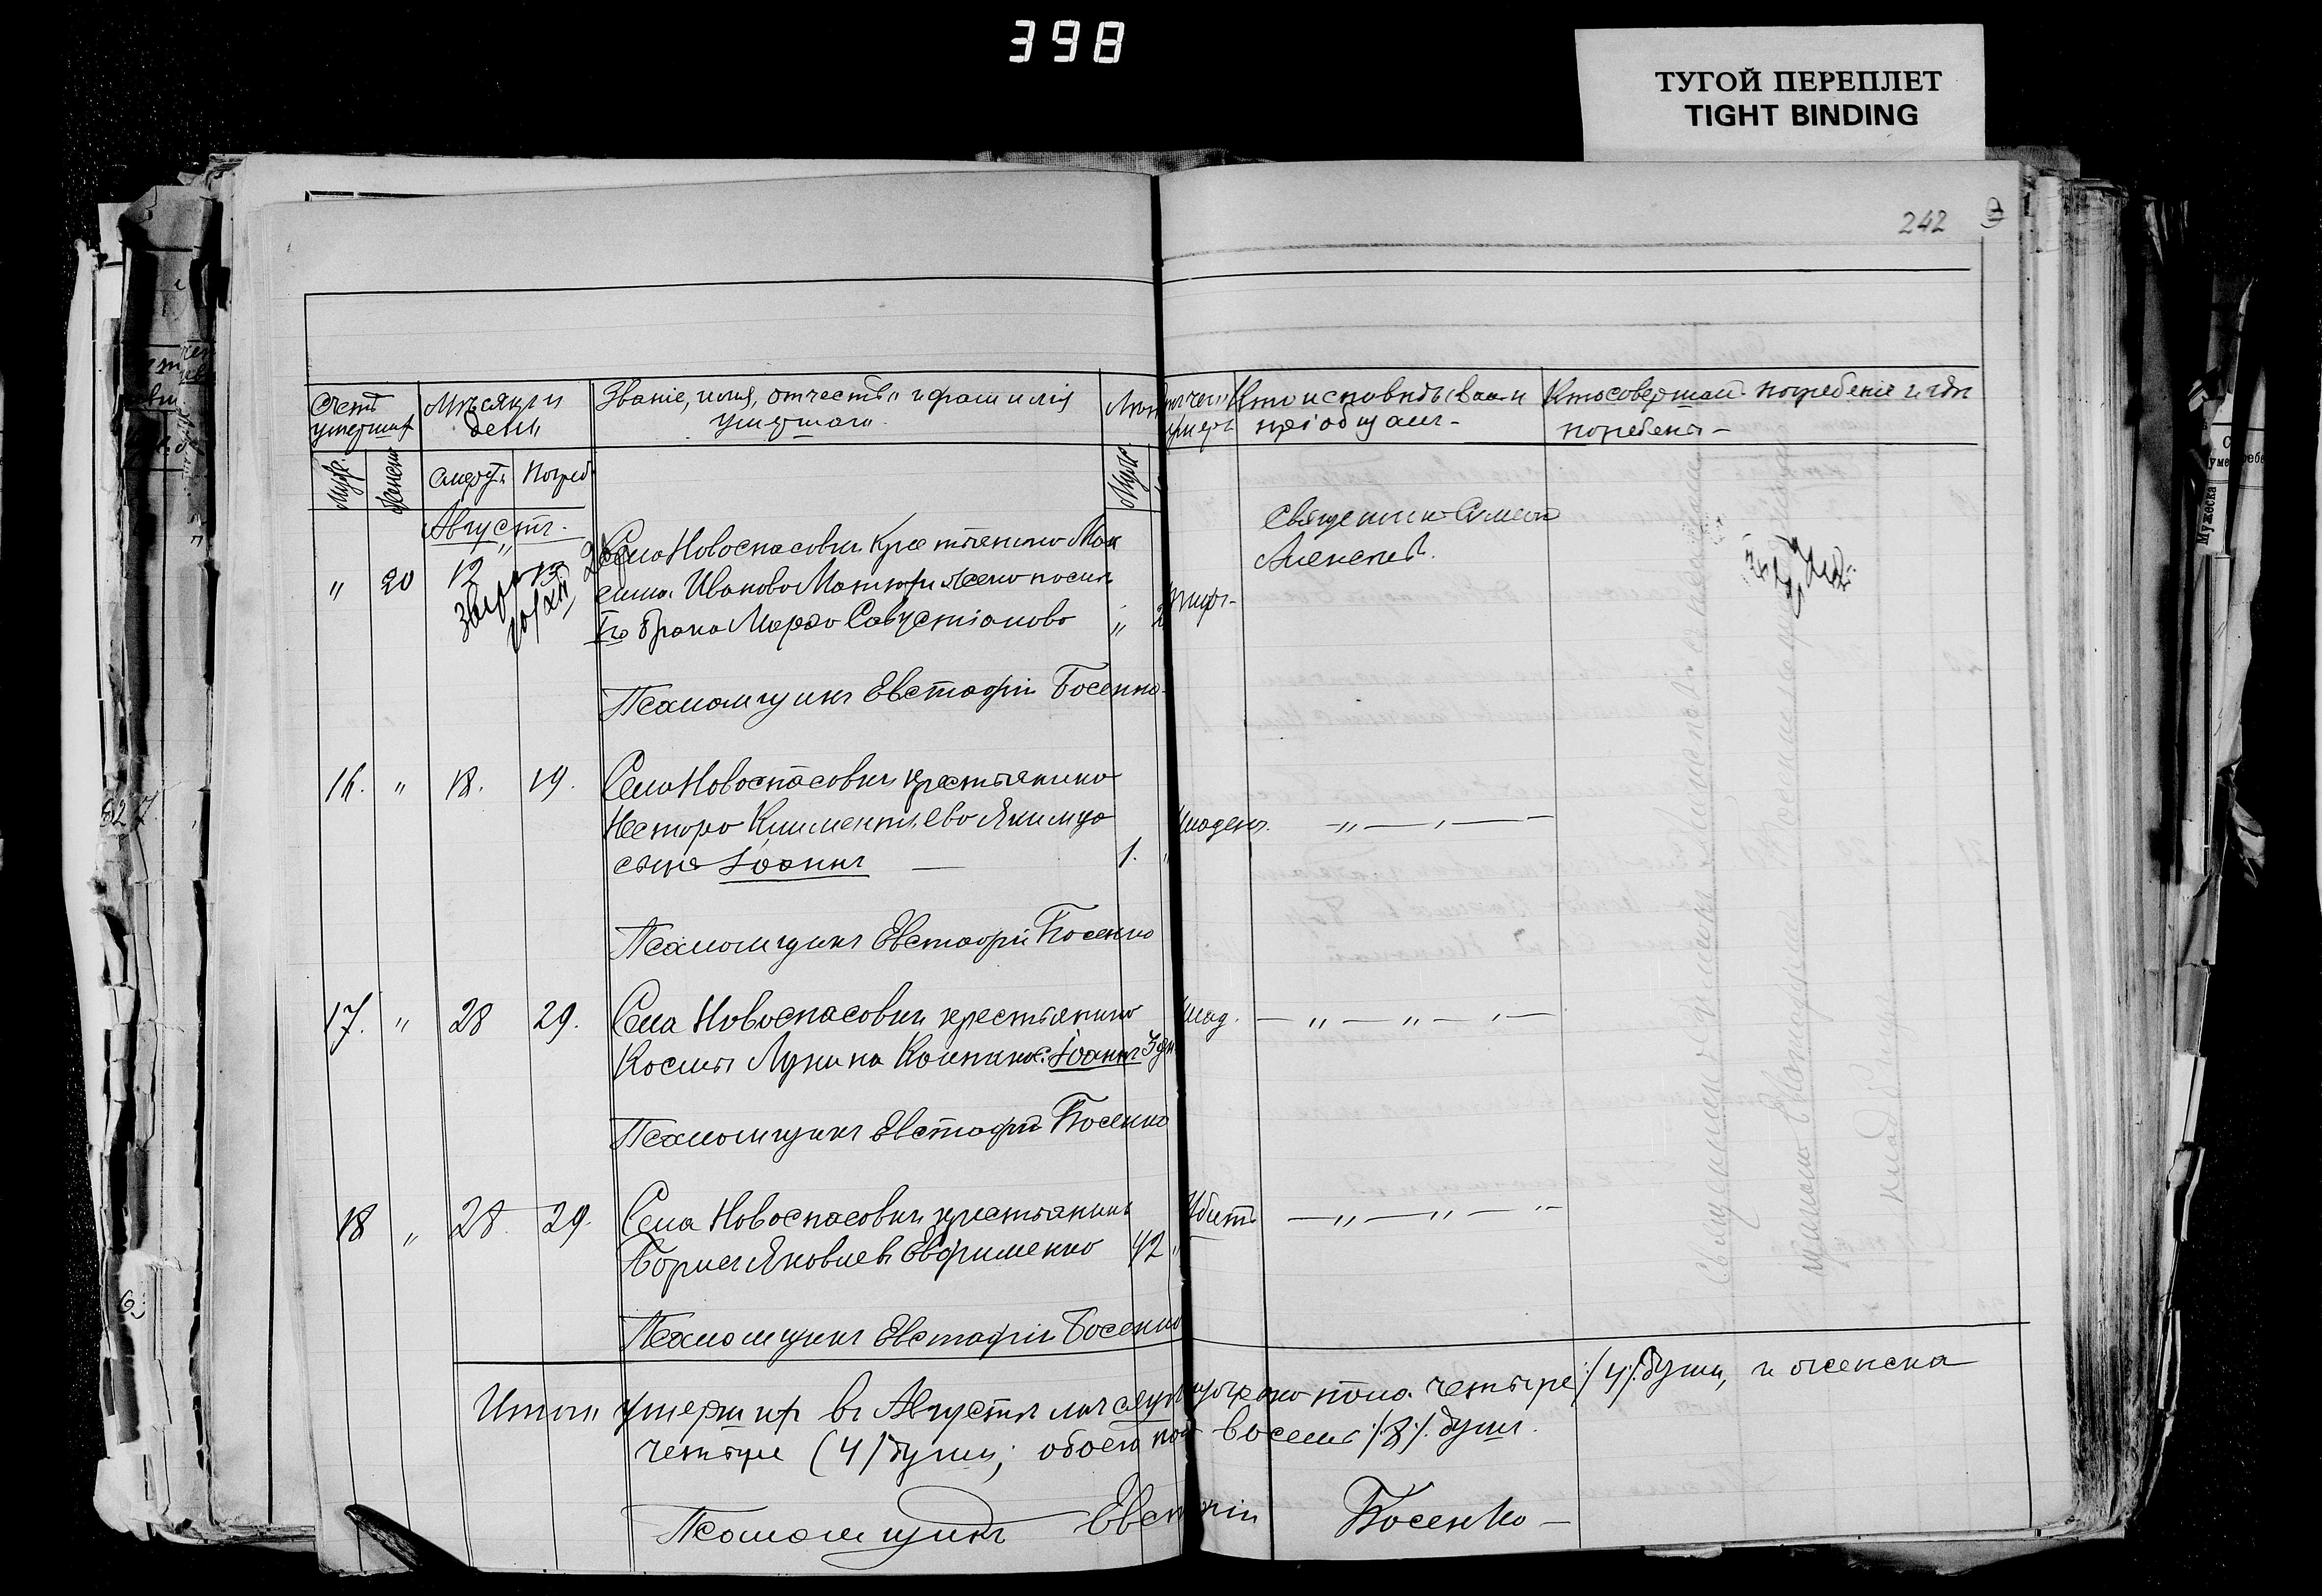 398
ТУГОЙ ПЕРЕПЛЕТ
TIGHT BINDING
242
Счетъ умершихъ
Мѣсяцъ и день
Званіе, имя, отчество и фамилія умершаго
Кто исповѣдывалъ и пріобщалъ
Кто совершалъ погребеніе и гдѣ погребены
Муж.
Женск.
Смерт.
Погреб.
Муж.
Августъ
" 20 12 13
Села Новоспасовки крестьянина Мак
сима Иванова жена послѣ
брака Марѳа Савустіанова
тифъ
Священникъ Симеонъ
Алексѣевъ.
Псаломщикъ Евстафій Босенко
16. " 18. 19. Села Новоспасовки крестьянина
Нестора Климентьева Якимца
сынъ Іоаннъ 1.
младен. " "
Псаломщикъ Евстафій Босенко
17. " 28 29. Села Новоспасовки крестьянина
Космы Лукина с. Іоаннъ 3 дн
млад. " " "
Псаломщикъ Евстафій Босенко
18 " 28. 29. Села Новоспасовки крестьянинъ
Борисъ Яковлевъ Евфименко 42 "
Убитъ " " "
Псаломщикъ Евстафій Босенко
Итого умершихъ въ Августѣ мѣсяцѣ мужско пола четыре /4/ души, и женска
четыре (4/ души; обоего пол восемь /8/ душъ.
Псаломщикъ Евстафій Босенко